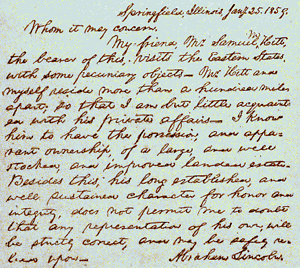 Springfield, Illinois Jany. 25. 1859.
Whom it may concern.
My friend, Mr. Samuel Hitt,
the bearer of this, visits the Eastern States,
with some pecuniary objects— Mr. Hitt and
myself reside more than a hundred miles
apart, so that I am but little acquaint-
ed with his private affairs— I know
him to have the possession, and appa-
rant ownership, of a large, and well
stocked, and improved landed estate.
Besides this, his long established, and
well sustained character for honor and
integrity, does not permit me to doubt
that any representation of his own, will
be strictly correct, and may be safely re-
lied upon—
Abraham Lincoln.